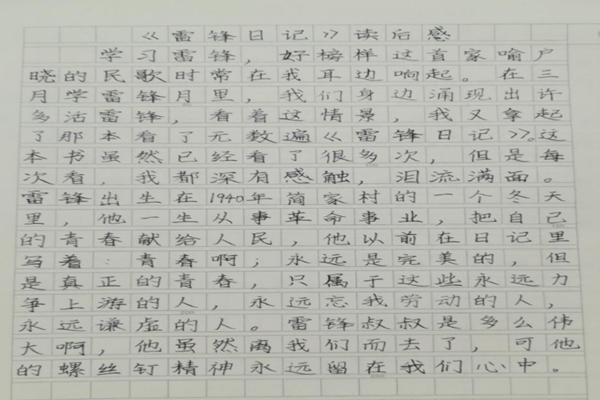 《雷锋日记》读后感
学习雷锋，好榜样这首家喻户
晓的民歌时常在我耳边响起。在三
月学雷锋月里，我们身边涌现出许
多活雷锋，看着这情景，我又拿起
了那本看了无数遍《雷锋日记》。这
本书虽然已经看了很多次，但是每
次看，我都深有感触，泪流满面。
雷锋出生在1940年简家村的一个冬天
里，他一生从事革命事业，把自己
的青春献给人民，他以前在日记里
写着：青春啊；永远是完美的，但
是真正的青春，只属于这些永远力
争上游的人，永远忘我劳动的人，
永远谦虚的人。雷锋叔叔是多么伟
大啊，他虽然离我们而去了，可他
的螺丝钉精神永远留在我们心中。